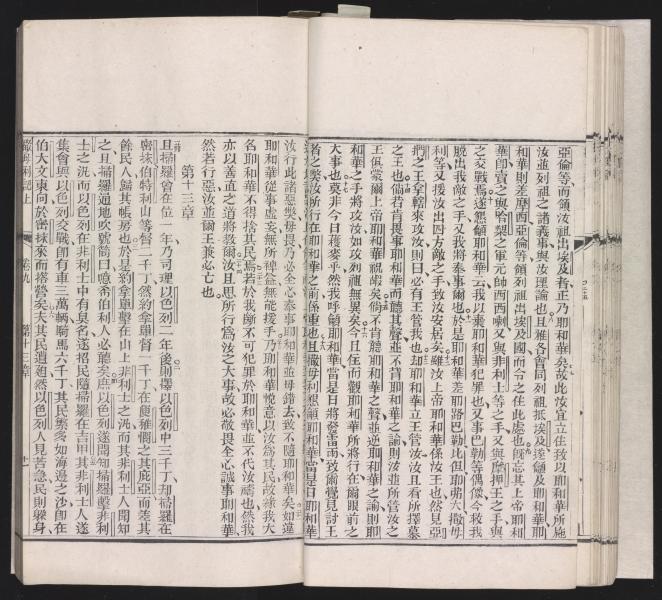 亞倫等而領汝祖出埃及者正乃耶和華矣故此汝宜立住致以耶和華所施
汝並列祖之諸義事與汝理論也且雅各會同列祖抵埃及遂籲及耶和華耶
和華則差摩西亞倫等領列祖出埃及國而令之住此處也旣忘其上帝耶和
華即賣之與哈之軍元帥西西喇又與非利士等之手又與摩押王之手與
之交戰焉遂懇籲耶和華云我以棄耶和華犯罪也又事巴勒等偶像今救我
脫出我敵之手又我將奉事爾也於是耶和華差耶路巴勒比但耶弗大撒母
利等又援汝出四方敵之手致汝安居矣雖汝上帝耶和華係汝王也然見亞
捫之王拿轄來攻汝則曰必有王管我也却耶和華立王管汝汝且看所擇慕
之王也倘若肯畏事耶和華而聽其聲並不背耶和華之諭則汝並所管汝之
王俱蒙爾上帝耶和華祝嘏矣倘不肯聽耶和華之聲並逆耶和華之諭則耶
和華之手將攻汝如攻列祖無異矣今且而觀耶和華所將行在爾眼前之
大事也莫非今日穫麥乎然我呼籲耶和華當是日將發雷雨致爾覺見討王
者之獘汝所行在耶和華之前係重也且撒母利懇籲耶和華當是日耶和華
汝行此諸惡獘毋畏乃必全心奉事耶和華並毋錯去致不隨耶和華矣如違
耶和華從事虛妄無所裨益無能援手乃耶和華悅意以汝爲其民故緣我大
名耶和華不得捨其民焉若於我斷不可犯罪於耶和華並不代汝禱也然我
亦以善直之道將教爾汝且思所行爲汝之大事故必敬畏全心誠事耶和華
然若行惡汝並爾王兼必亡也
第十三章
且掃羅曾在位一年乃司理以色列二年後則擇以色列中三千丁却掃羅在
密抹伯特利山等督二千丁然約拿單督一千丁在便雅憫之其庇亞而差其
餘民人歸其帳房也於是約拿單擊在山上非利士之汛而其非利士人聞知
之且掃羅遍地吹號筩曰噫希伯利人必聽矣庶以色列遂聞知掃羅擊非利
士之汛而以色列在非利士中有臭名遂招民隨掃羅在吉甲其非利士人遂
集會與以色列交戰卽有車三萬輛騎馬六千丁其民衆多如海邊之沙卽在
伯大文東向於密抹來而搭營矣夫其民遑廹然以色列人見苦急民則躱身
撒母利記上 卷九 第十三章 十一